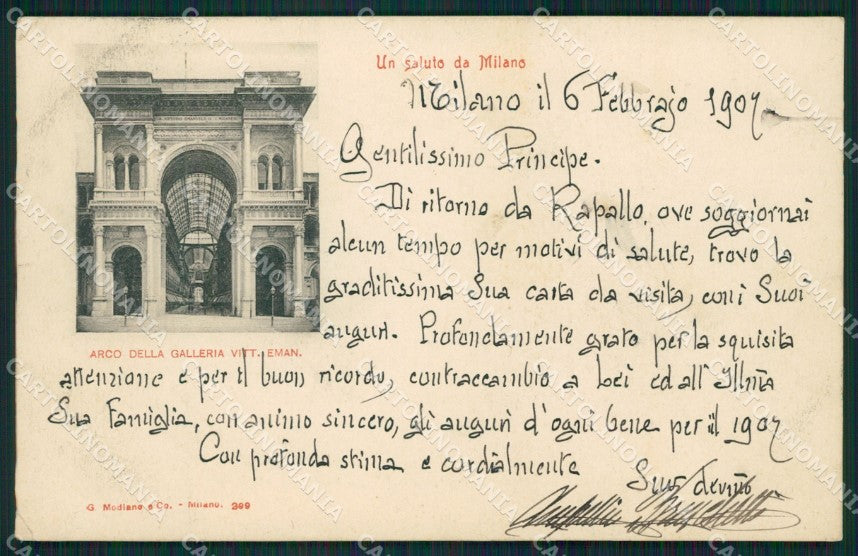 Un saluto da Milano
Milano il 6 Febbrajo 1907
Gentilissimo Principe.
Di ritorno da Rapallo, ove soggiornai
alcun tempo per motivi di salute, trovo la
graditissima Sua carta da visita, coni Suoi
auguri. Profondamente grato per la squisita
attenzione e per il buon ricordo, contraccambio a Lei ed all' Illma
Sua Famiglia, con animo sincero, gli auguri d'ogni bene per il 1907
Con profonda stima e cordialmente
Suo devmo
ARCO DELLA GALLERIA VITT. EMAN.
G. Modiano e Co. - Milano. 399
CARTOLINOMANIA